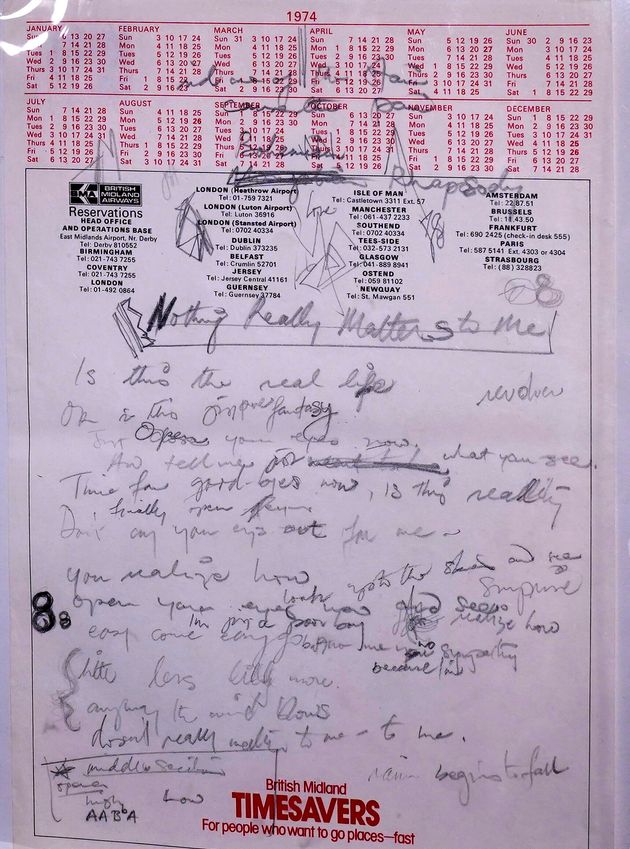 1974
JANUARY
Sun 6 13 20 27
7 14 21 28
Tues 1 8 15 22 29
Wed 2 9 16 23 30
Thurs 3 10 17 24 31
Fri 4 11 18 25
Sat 5 12 19 26
FEBRUARY
Sun 3 10 17 24
Mon 4 11 18 25
Tues 5 12 19 26
Wed 6 13 20 27
Thurs 7 14 21 28
Fri 1 8 15 22
Sat 2 9 16 23
MARCH
Sun 31 3 10 17 24
Mon 4 11 18 25
Tues 5 12 19 26
Wed 6 13 20 27
Thurs 7 14 21 28
Fri 1 8 15 22 29
Sat 2 9 16 23 30
APRIL
Sun 7 14 21 28
Mon 1 8 15 22 29
Tues 2 9 16 23 30
Wed 3 10 17 24
Thurs 4 11 18 25
Fri 5 12 19 26
Sat 6 13 20 27
MAY
Sun 5 12 19 26
Mon 6 13 20 27
Tues 7 14 21 28
Wed 1 8 15 22 29
Thurs 2 9 16 23 30
Fri 3 10 17 24 31
Sat 4 11 18 25
JUNE
Sun 30 2 9 16 23
Mon 3 10 17 24
Tues 4 11 18 25
Wed 5 12 19 26
Thurs 6 13 20 27
Fri 7 14 21 28
Sat 1 8 15 22 29
JULY
Sun 7 14 21 28
Mon 1 8 15 22 29
Tues 2 9 16 23 30
Wed 3 10 17 24 31
Thurs 4 11 18 25
Fri 5 12 19 26
Sat 6 13 20 27
AUGUST
Sun 4 11 18 25
Mon 5 12 19 26
Tues 6 13 20 27
Wed 7 14 21 28
Thurs 1 8 15 22 29
Fri 2 9 16 23 30
Sat 3 10 17 24 31
SEPTEMBER
Sun 1 8 15 22 29
Mon 2 9 16 23 30
Tues 3 10 17 24
Wed 4 11 18 25
Thurs 5 12 19 26
Fri 6 13 20 27
Sat 7 14 21 28
OCTOBER
Sun 6 13 20 27
Mon 7 14 21 28
Tues 1 8 15 22 29
Wed 2 9 16 23 30
Thurs 3 10 17 24 31
Fri 4 11 18 25
Sat 5 12 19 26
NOVEMBER
Sun 3 10 17 24
Mon 4 11 18 25
Tues 5 12 19 26
Wed 6 13 20 27
Thurs 7 14 21 28
Fri 1 8 15 22 29
Sat 2 9 16 23 30
DECEMBER
Sun 1 8 15 22 29
Mon 2 9 16 23 30
Tues 3 10 17 24 31
Wed 4 11 18 25
Thurs 5 12 19 26
Fri 6 13 20 27
Sat 7 14 21 28
Rhapsody
BRITISH
MIDLAND
AIRWAYS
Reservations
HEAD OFFICE
AND OPERATIONS BASE
East Midlands Airport, Nr. Derby
Tel: Derby 810552
BIRMINGHAM
Tel: 021-743 7255
COVENTRY
Tel: 021-743 7255
LONDON
Tel: 01-492 0864
LONDON (Heathrow Airport)
Tel: 01-759 7321
LONDON (Luton Airport)
Tel: Luton 36916
LONDON (Stansted Airport)
Tel: 0702 40334
DUBLIN
Tel: Dublin 373235
BELFAST
Tel: Crumlin 52701
JERSEY
Tel: Jersey Central 41161
GUERNSEY
Tel: Guernsey 37784
Love
ISLE OF MAN
Tel: Castletown 3311 Ext. 57
MANCHESTER
Tel: 061-437 2233
SOUTHEND
Tel: 0702 40334
TEES-SIDE
Tel: 032-573 2131
GLASGOW
Tel: 041-889 8941
OSTEND
Tel: 059 81102
NEWQUAY
Tel: St. Mawgan 551
AMSTERDAM
Tel: 22.87.51
BRUSSELS
Tel: 18.43.50
FRANKFURT
Tel: 690 2425 (check-in desk 555)
PARIS
Tel: 587 5141 Ext. 4303 or 4304
STRASBOURG
Tel: (88) 328823
Nothing Really Matters to Me
Is this the real life
revolver
Or is this just fantasy
Just Open your eyes now.
And tell me what you see.
Time for good-byes now, is this reality
finally open
Don't cry your eyes out for me –
you realize how
look up to the skies and see
surprise
8
open your eyes now and see
realize how
I'm just a poor boy
easy come easy go
no sympathy
because I'm
little less little more.
anyway the wind blows
doesn't really matter to me – to me.
middle section
opera
how
AABA
rain begins to fall
British Midland
TIMESAVERS
For people who want to go places—fast